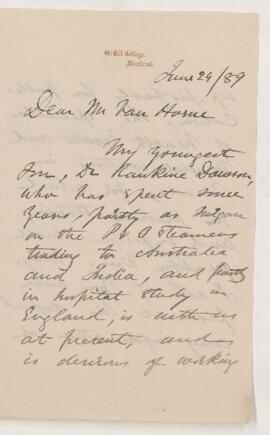 McGill College,
Montreal.
June 29/89
Dear Mr Van Horne
My youngest
Son, Dr Rankine Dawson,
who has spent some
years, partly as surgeon
on the P & O Steamers
trading to Australia
and India, and partly
in hospital study in
England, is with us
at present, and
is desirous of working